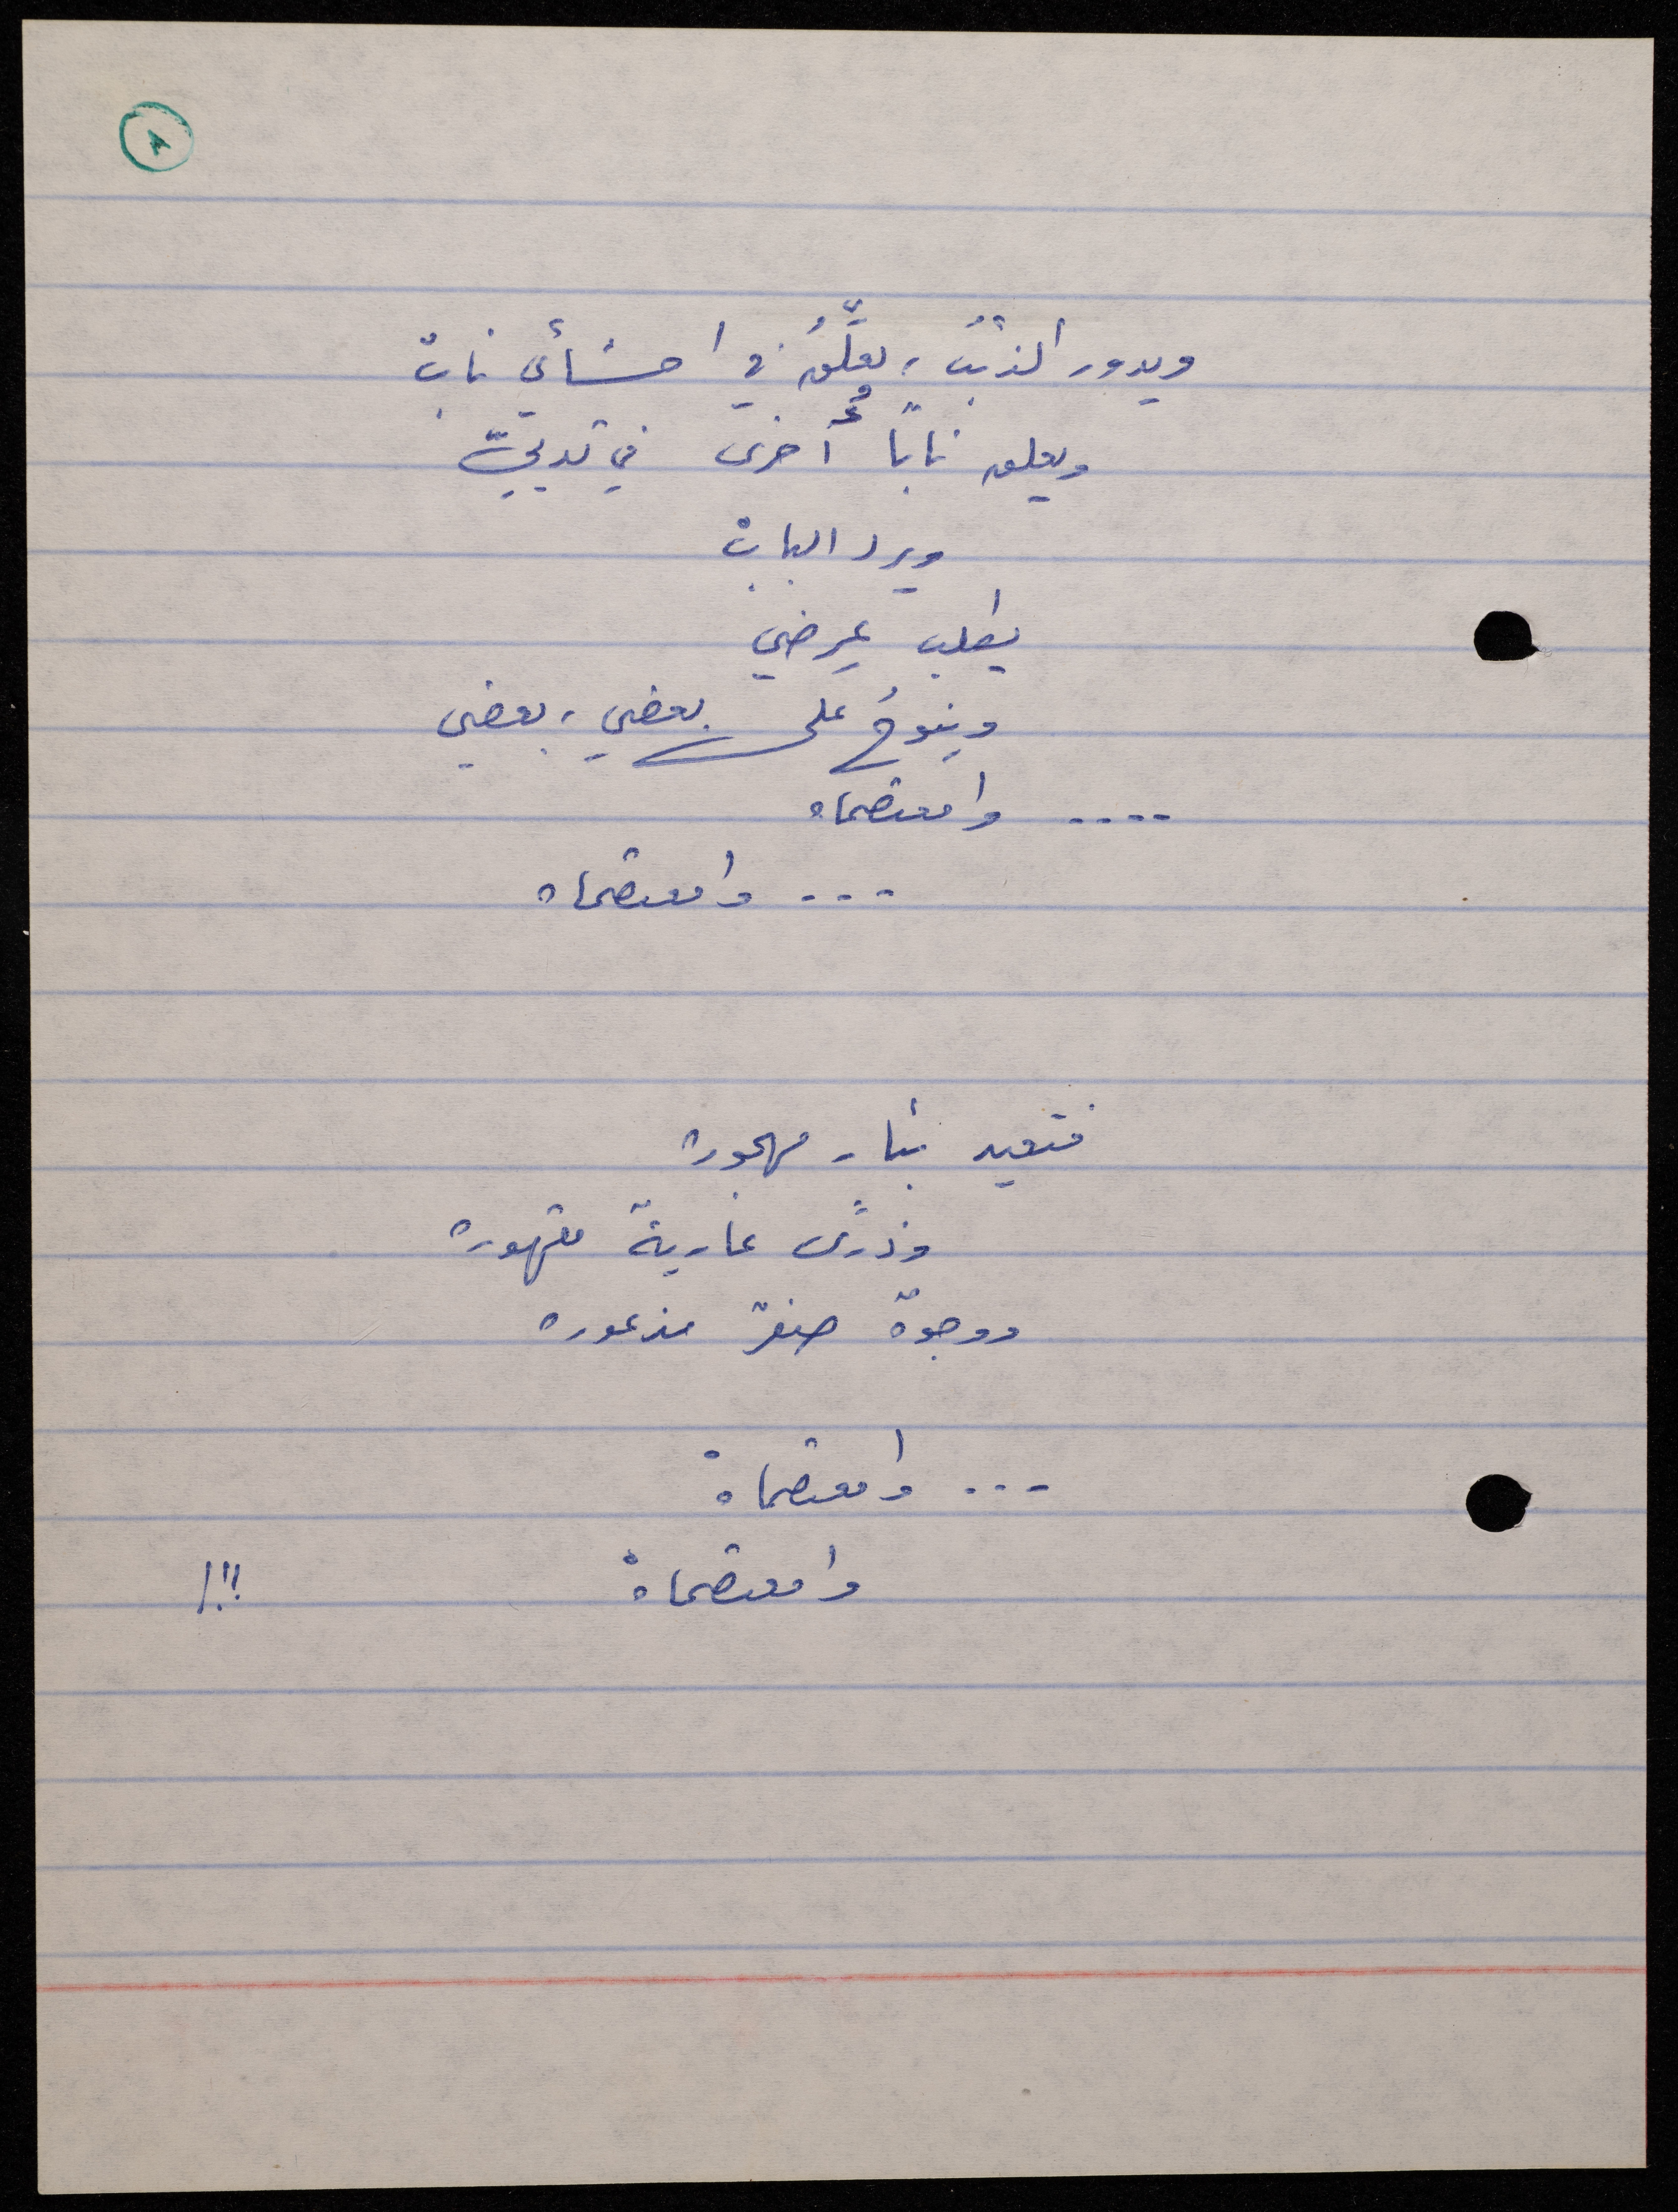 ٨
ويدور الذئبُ، يعلِّقُ في احشائي نابْ
ويعلق ناباً أُخرى في ثدييّ
ويرد البابْ
يطلب عِرضي
وينوحُ على بعضي، بعضي
.... وامعتصماه
... وامعتصماه
فتعيد بئار مهجوره
وذرًى عارية مقهوره
ووجوهٌ صفرٌ مذعوره
... وامعتصماهْ
وامعتصماهْ !!!